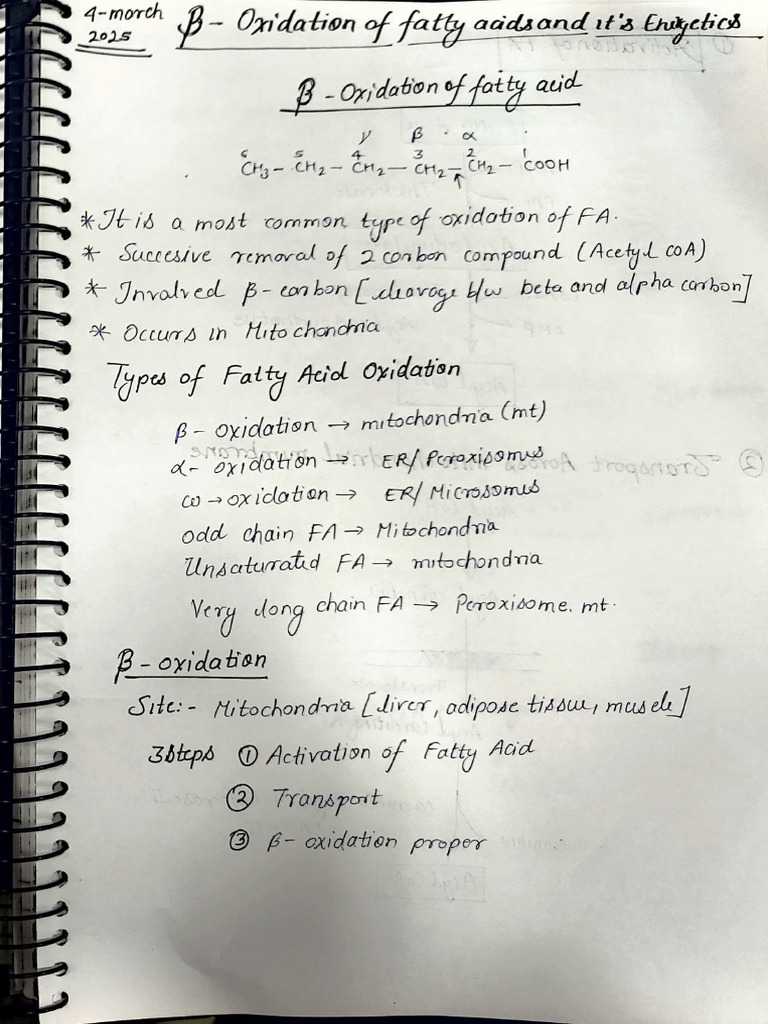 4-march
2025
β - Oxidation of fatty acids and it's Energetics
β - Oxidation of fatty acid
γ β α
6 5 4 3 2 1
CH₃ - CH₂ - CH₂ - CH₂ - CH₂ - COOH
↑
* It is a most common type of oxidation of FA.
* Succesive removal of 2 carbon compound (Acetyl coA)
* Involved β-carbon [cleavage b/w beta and alpha carbon]
* Occurs in Mitochondria
Types of Fatty Acid Oxidation
β - oxidation → mitochondria (mt)
α - oxidation → ER/Peroxisomes
ω → oxidation → ER/Microsomes
odd chain FA → Mitochondria
Unsaturated FA → mitochondria
Very long chain FA → Peroxisome. mt.
β - oxidation
Site:- Mitochondria [liver, adipose tissue, muscle]
3 steps ① Activation of Fatty Acid
② Transport
③ β - oxidation proper
② Transport Across membrane